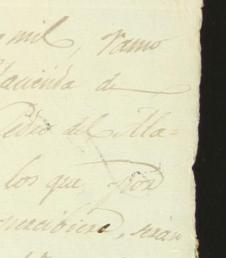 mil, ramo
Hacienda de
Pedro del Alla=
los que por
percibiere, serán